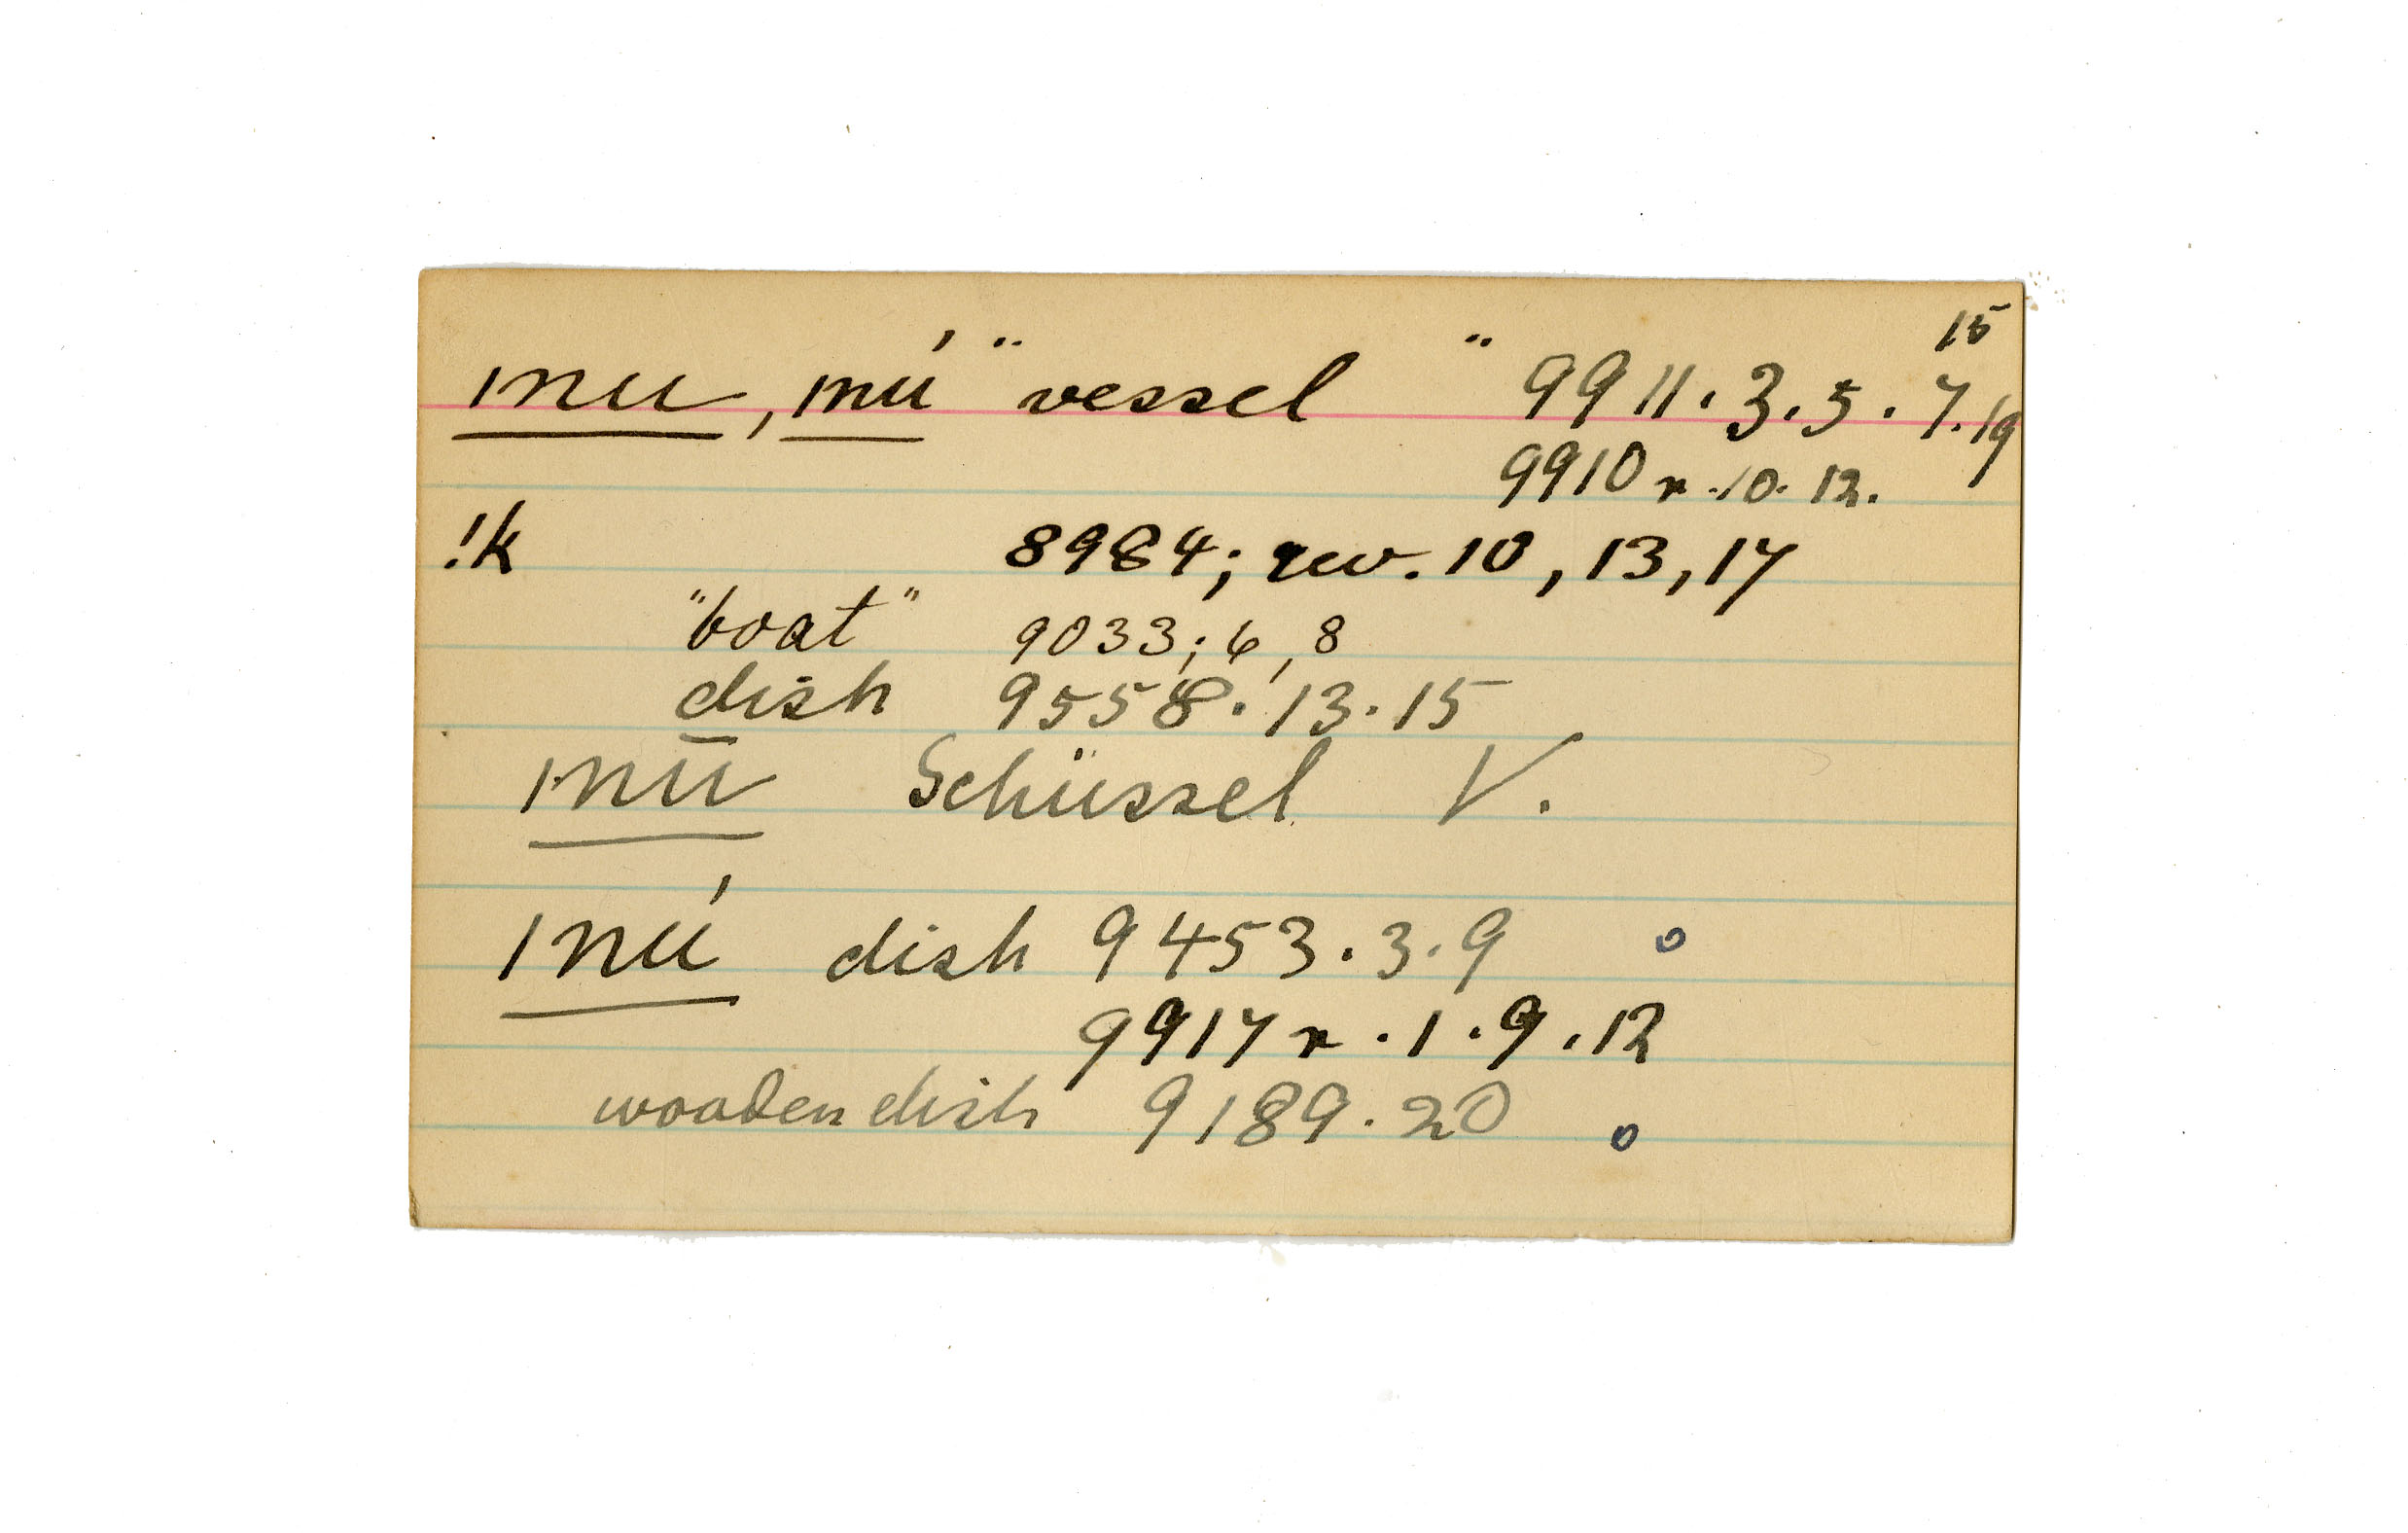 15
|nu, |nú "vessel" 9911.3.5.7.19
9910 r.10.12.
!k 8984; rev. 10, 13, 17
"boat" 9033; 6, 8
dish 9558.13.15
|nū Schüssel V.
|nú dish 9453.3.9 o
9917 r.1.9.12
wooden dish 9189.20 o